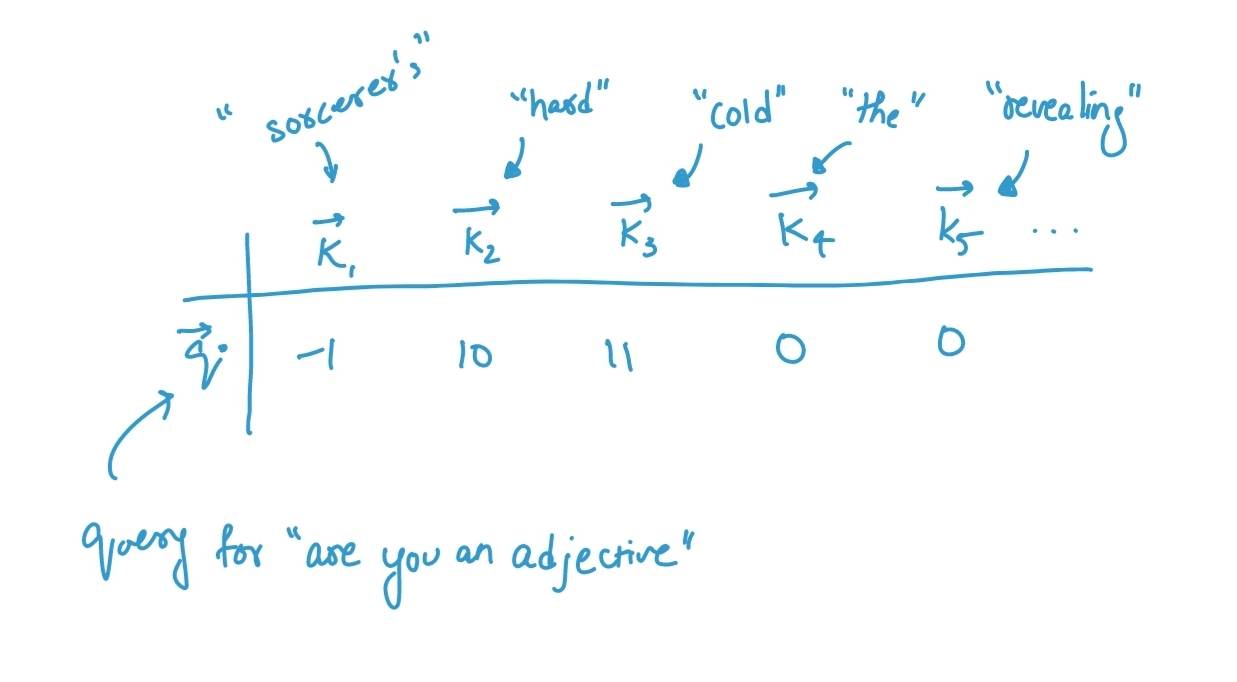 "sorcerer's" "hard" "cold" "the" "revealing"
K₁ K₂ K₃ K₄ k₅ ...
q. -1 10 11 0 0
query for "are you an adjective"